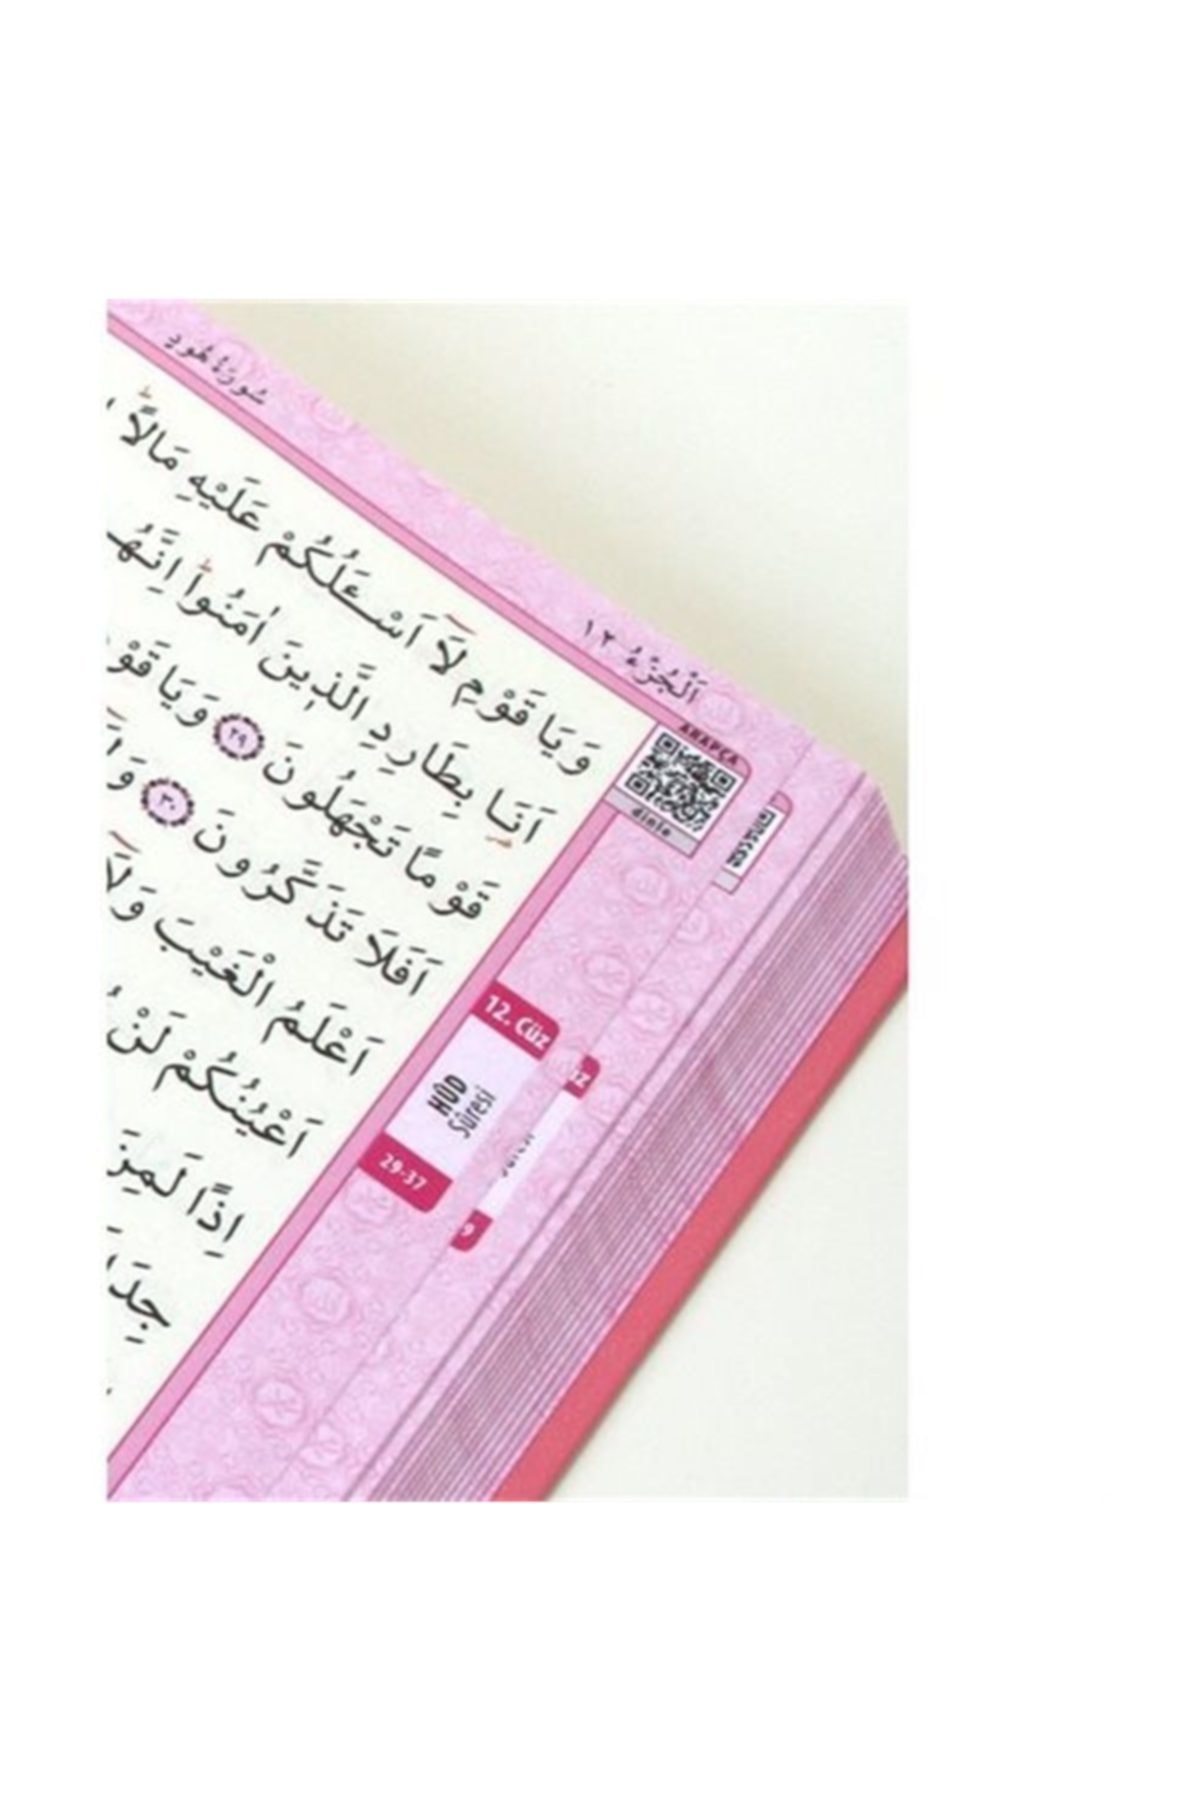 سُورَةُ هُودٍ
اَلْجُزْءُ ١٢
وَيَا قَوْمِ لَٓا اَسْـَٔلُكُمْ عَلَيْهِ مَالًاۜ
اَنَا۬ بِطَارِدِ الَّذ۪ينَ اٰمَنُواۜ اِنَّهُ
قَوْمًا تَجْهَلُونَ ٢٩ وَيَا قَوْ
اَفَلَا تَذَكَّرُونَ ٣٠
اَعْلَمُ الْغَيْبَ وَلَٓا
اَعْيُنُكُمْ لَنْ
اِذًا لَمِنَ
جِدَا
ARAPÇA
dinle
12. Cüz
HÛD
Sûresi
29-37